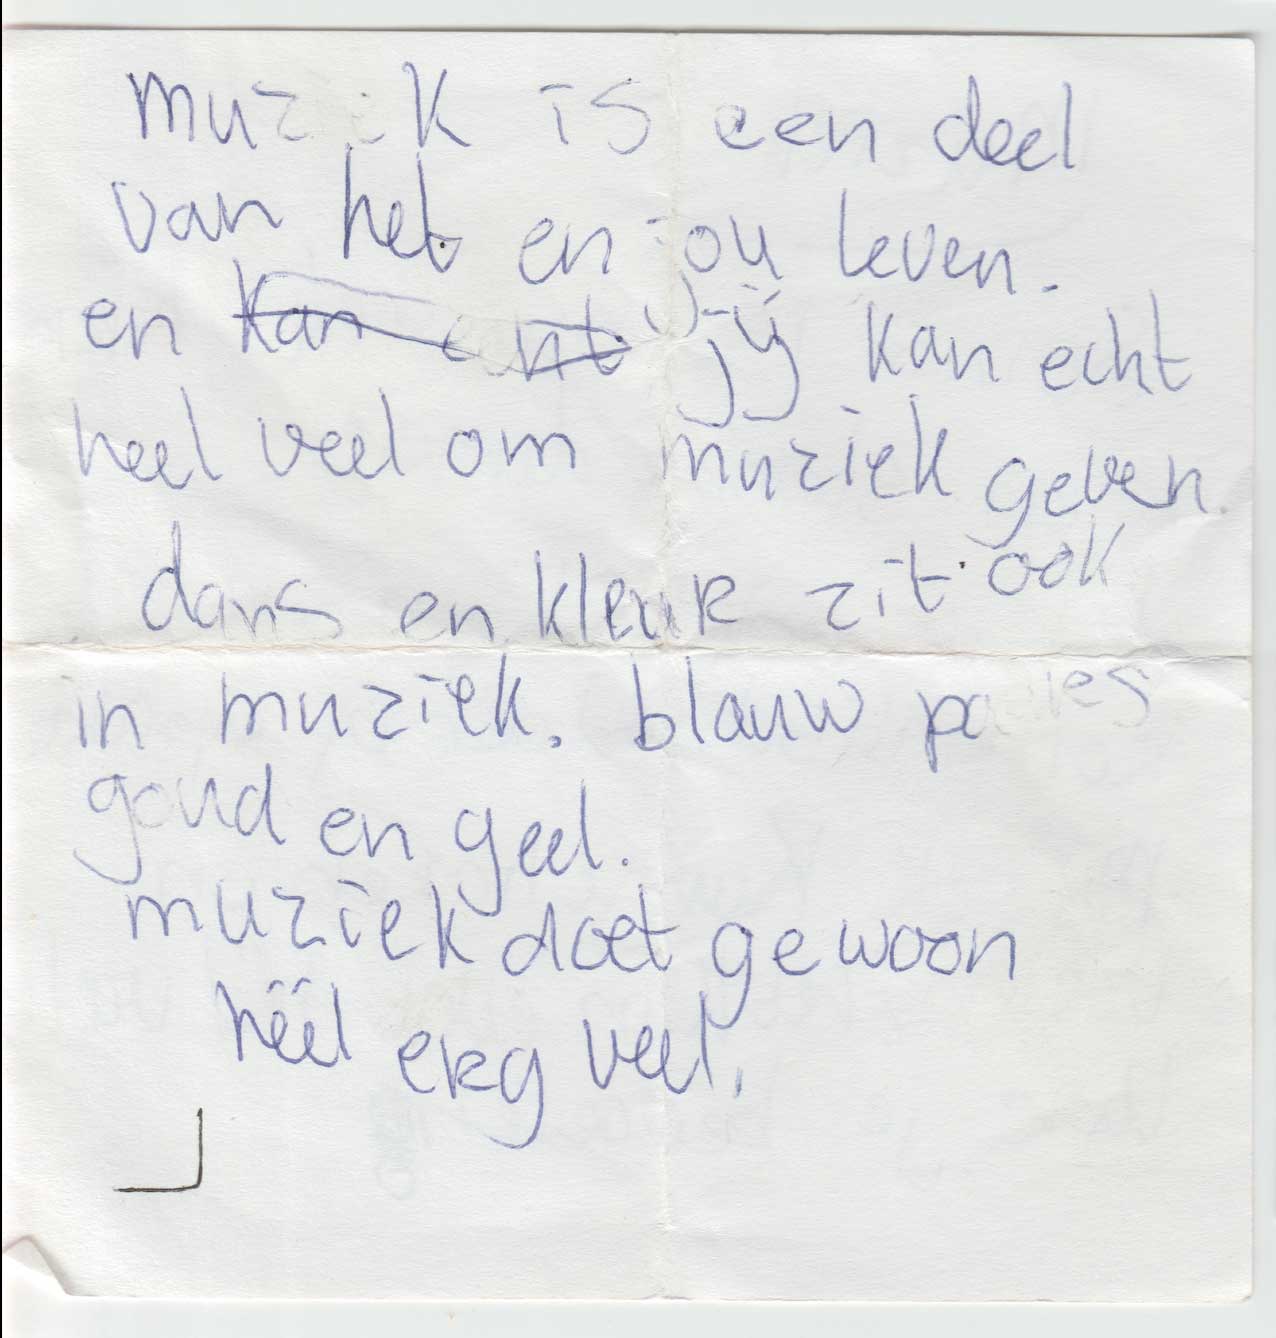 muziek is een deel
van het en jou leven.
en kan echt jij kan echt
heel veel om muziek geven.
dans en kleur zit ook
in muziek. blauw paves
goud en geel.
muziek doet gewoon
hëël erg veel.